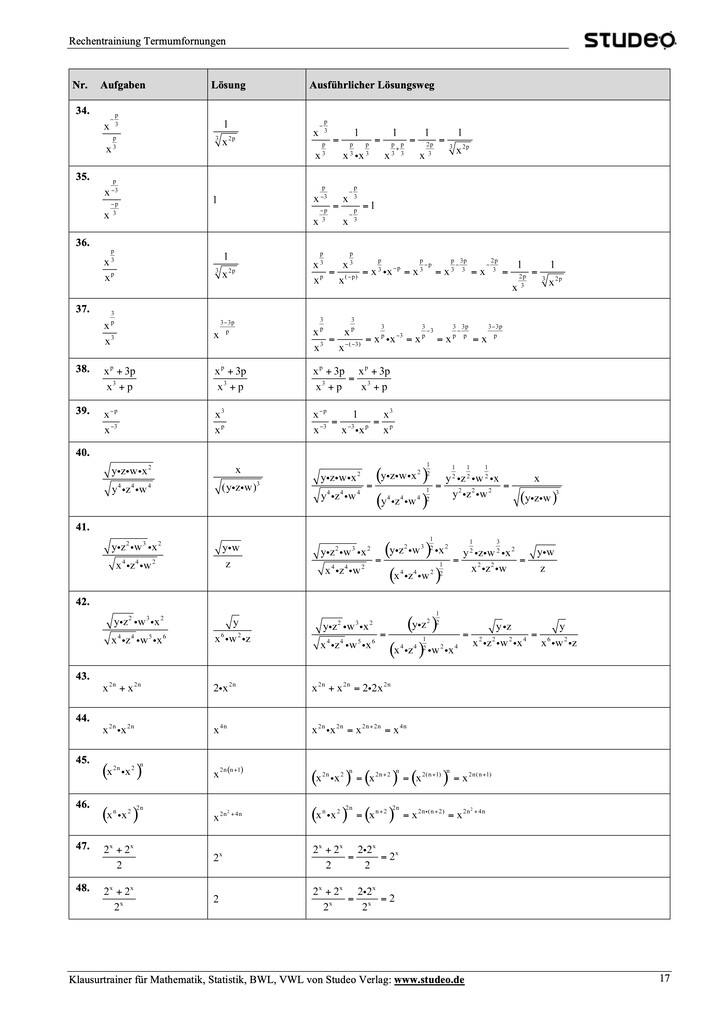 Rechentrainiung Termumfornungen
STUDEO
Nr. Aufgaben Lösung Ausführlicher Lösungsweg
34. x^(-p/3) / x^(p/3) 1 / ∛(x^(2p)) x^(-p/3) / x^(p/3) = 1 / (x^(p/3)•x^(p/3)) = 1 / x^(p/3+p/3) = 1 / x^(2p/3) = 1 / ∛(x^(2p))
35. x^(p/-3) / x^(-p/3) 1 x^(p/-3) / x^(-p/3) = x^(-p/3) / x^(-p/3) = 1
36. x^(p/3) / x^p 1 / ∛(x^(2p)) x^(p/3) / x^p = x^(p/3) / x^(-(-p)) = x^(p/3)•x^(-p) = x^(p/3-p) = x^(p/3-3p/3) = x^(-2p/3) = 1 / x^(2p/3) = 1 / ∛(x^(2p))
37. x^(3/p) / x^3 x^((3-3p)/p) x^(3/p) / x^3 = x^(3/p) / x^(-(-3)) = x^(3/p)•x^(-3) = x^(3/p-3) = x^(3/p-3p/p) = x^((3-3p)/p)
38. (x^p + 3p) / (x^3 + p) (x^p + 3p) / (x^3 + p) (x^p + 3p) / (x^3 + p) = (x^p + 3p) / (x^3 + p)
39. x^(-p) / x^(-3) x^3 / x^p x^(-p) / x^(-3) = 1 / (x^(-3)•x^p) = x^3 / x^p
40. √(y•z•w•x^2) / √(y^4•z^4•w^4) x / √((y•z•w)^3) √(y•z•w•x^2) / √(y^4•z^4•w^4) = (y•z•w•x^2)^(1/2) / (y^4•z^4•w^4)^(1/2) = (y^(1/2)•z^(1/2)•w^(1/2)•x) / (y^2•z^2•w^2) = x / √((y•z•w)^3)
41. √(y•z^2•w^3•x^2) / √(x^4•z^4•w^2) (y•w) / z √(y•z^2•w^3•x^2) / √(x^4•z^4•w^2) = ((y•z^2•w^3)^(1/2)•x^2) / (x^4•z^4•w^2)^(1/2) = (y^(1/2)•z•w^(3/2)•x^2) / (x^2•z^2•w) = (y•w) / z
42. √(y•z^2•w^3•x^2) / √(x^4•z^4•w^5•x^6) √y / (x^6•w^2•z) √(y•z^2•w^3•x^2) / √(x^4•z^4•w^5•x^6) = (y•z^2)^(1/2) / ((x^4•z^4)^(1/2)•w^2•x^4) = √(y•z) / (x^2•z^2•w^2•x^4) = √y / (x^6•w^2•z)
43. x^(2n) + x^(2n) 2•x^(2n) x^(2n) + x^(2n) = 2•2x^(2n)
44. x^(2n)•x^(2n) x^(4n) x^(2n)•x^(2n) = x^(2n+2n) = x^(4n)
45. (x^(2n)•x^2)^n x^(2n(n+1)) (x^(2n)•x^2)^n = (x^(2n+2))^n = (x^(2(n+1)))^n = x^(2n(n+1))
46. (x^n•x^2)^(2n) x^(2n²+4n) (x^n•x^2)^(2n) = (x^(n+2))^(2n) = x^(2n•(n+2)) = x^(2n²+4n)
47. (2^x + 2^x) / 2 2^x (2^x + 2^x) / 2 = (2•2^x) / 2 = 2^x
48. (2^x + 2^x) / 2^x 2 (2^x + 2^x) / 2^x = (2•2^x) / 2^x = 2
Klausurtrainer für Mathematik, Statistik, BWL, VWL von Studeo Verlag: www.studeo.de 17